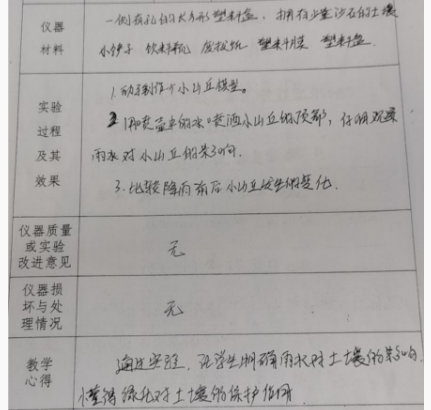 仪器
材料
一侧有孔的长方形塑料盒、拥有少量沙石的土壤
小铲子 饮料瓶 废报纸 塑料膜 塑料盒
实验
过程
及其
效果
1.动手制作个小山丘模型。
2.用喷壶里的水喷洒小山丘的顶部,仔细观察
雨水对小山丘的影响。
3.比较降雨前后小山丘发生的变化。
仪器质量
或实验
改进意见
无
仪器损
坏与处
理情况
无
教学
心得
通过实验,让学生明确雨水对土壤的影响。
懂得绿化对土壤的保护作用